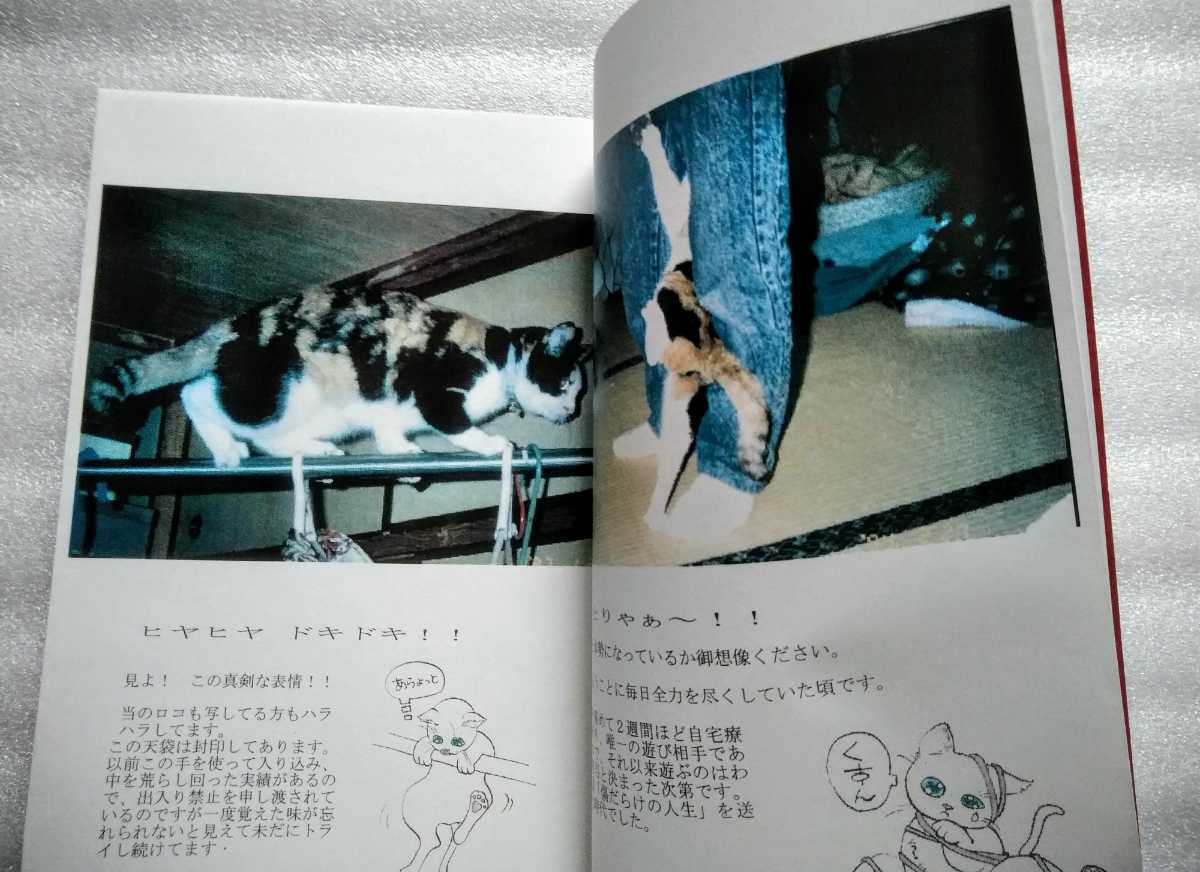 ヒヤヒヤ ドキドキ！！
見よ！ この真剣な表情！！
当のロコも写してる方もハラ
ハラしてます。
この天袋は封印してあります。
以前この手を使って入り込み、
中を荒らし回った実績があるの
で、出入り禁止を申し渡されて
いるのですが一度覚えた味が忘
れられないと見えて未だにトラ
イし続けてます・
あらよっと
りゃぁ～！！
勢になっているか御想像ください。
ことに毎日全力を尽くしていた頃です。
めて２週間ほど自宅療
唯一の遊び相手であ
それ以来遊ぶのはわ
と決まった次第です。
だらけの人生」を送
代でした。
くすん